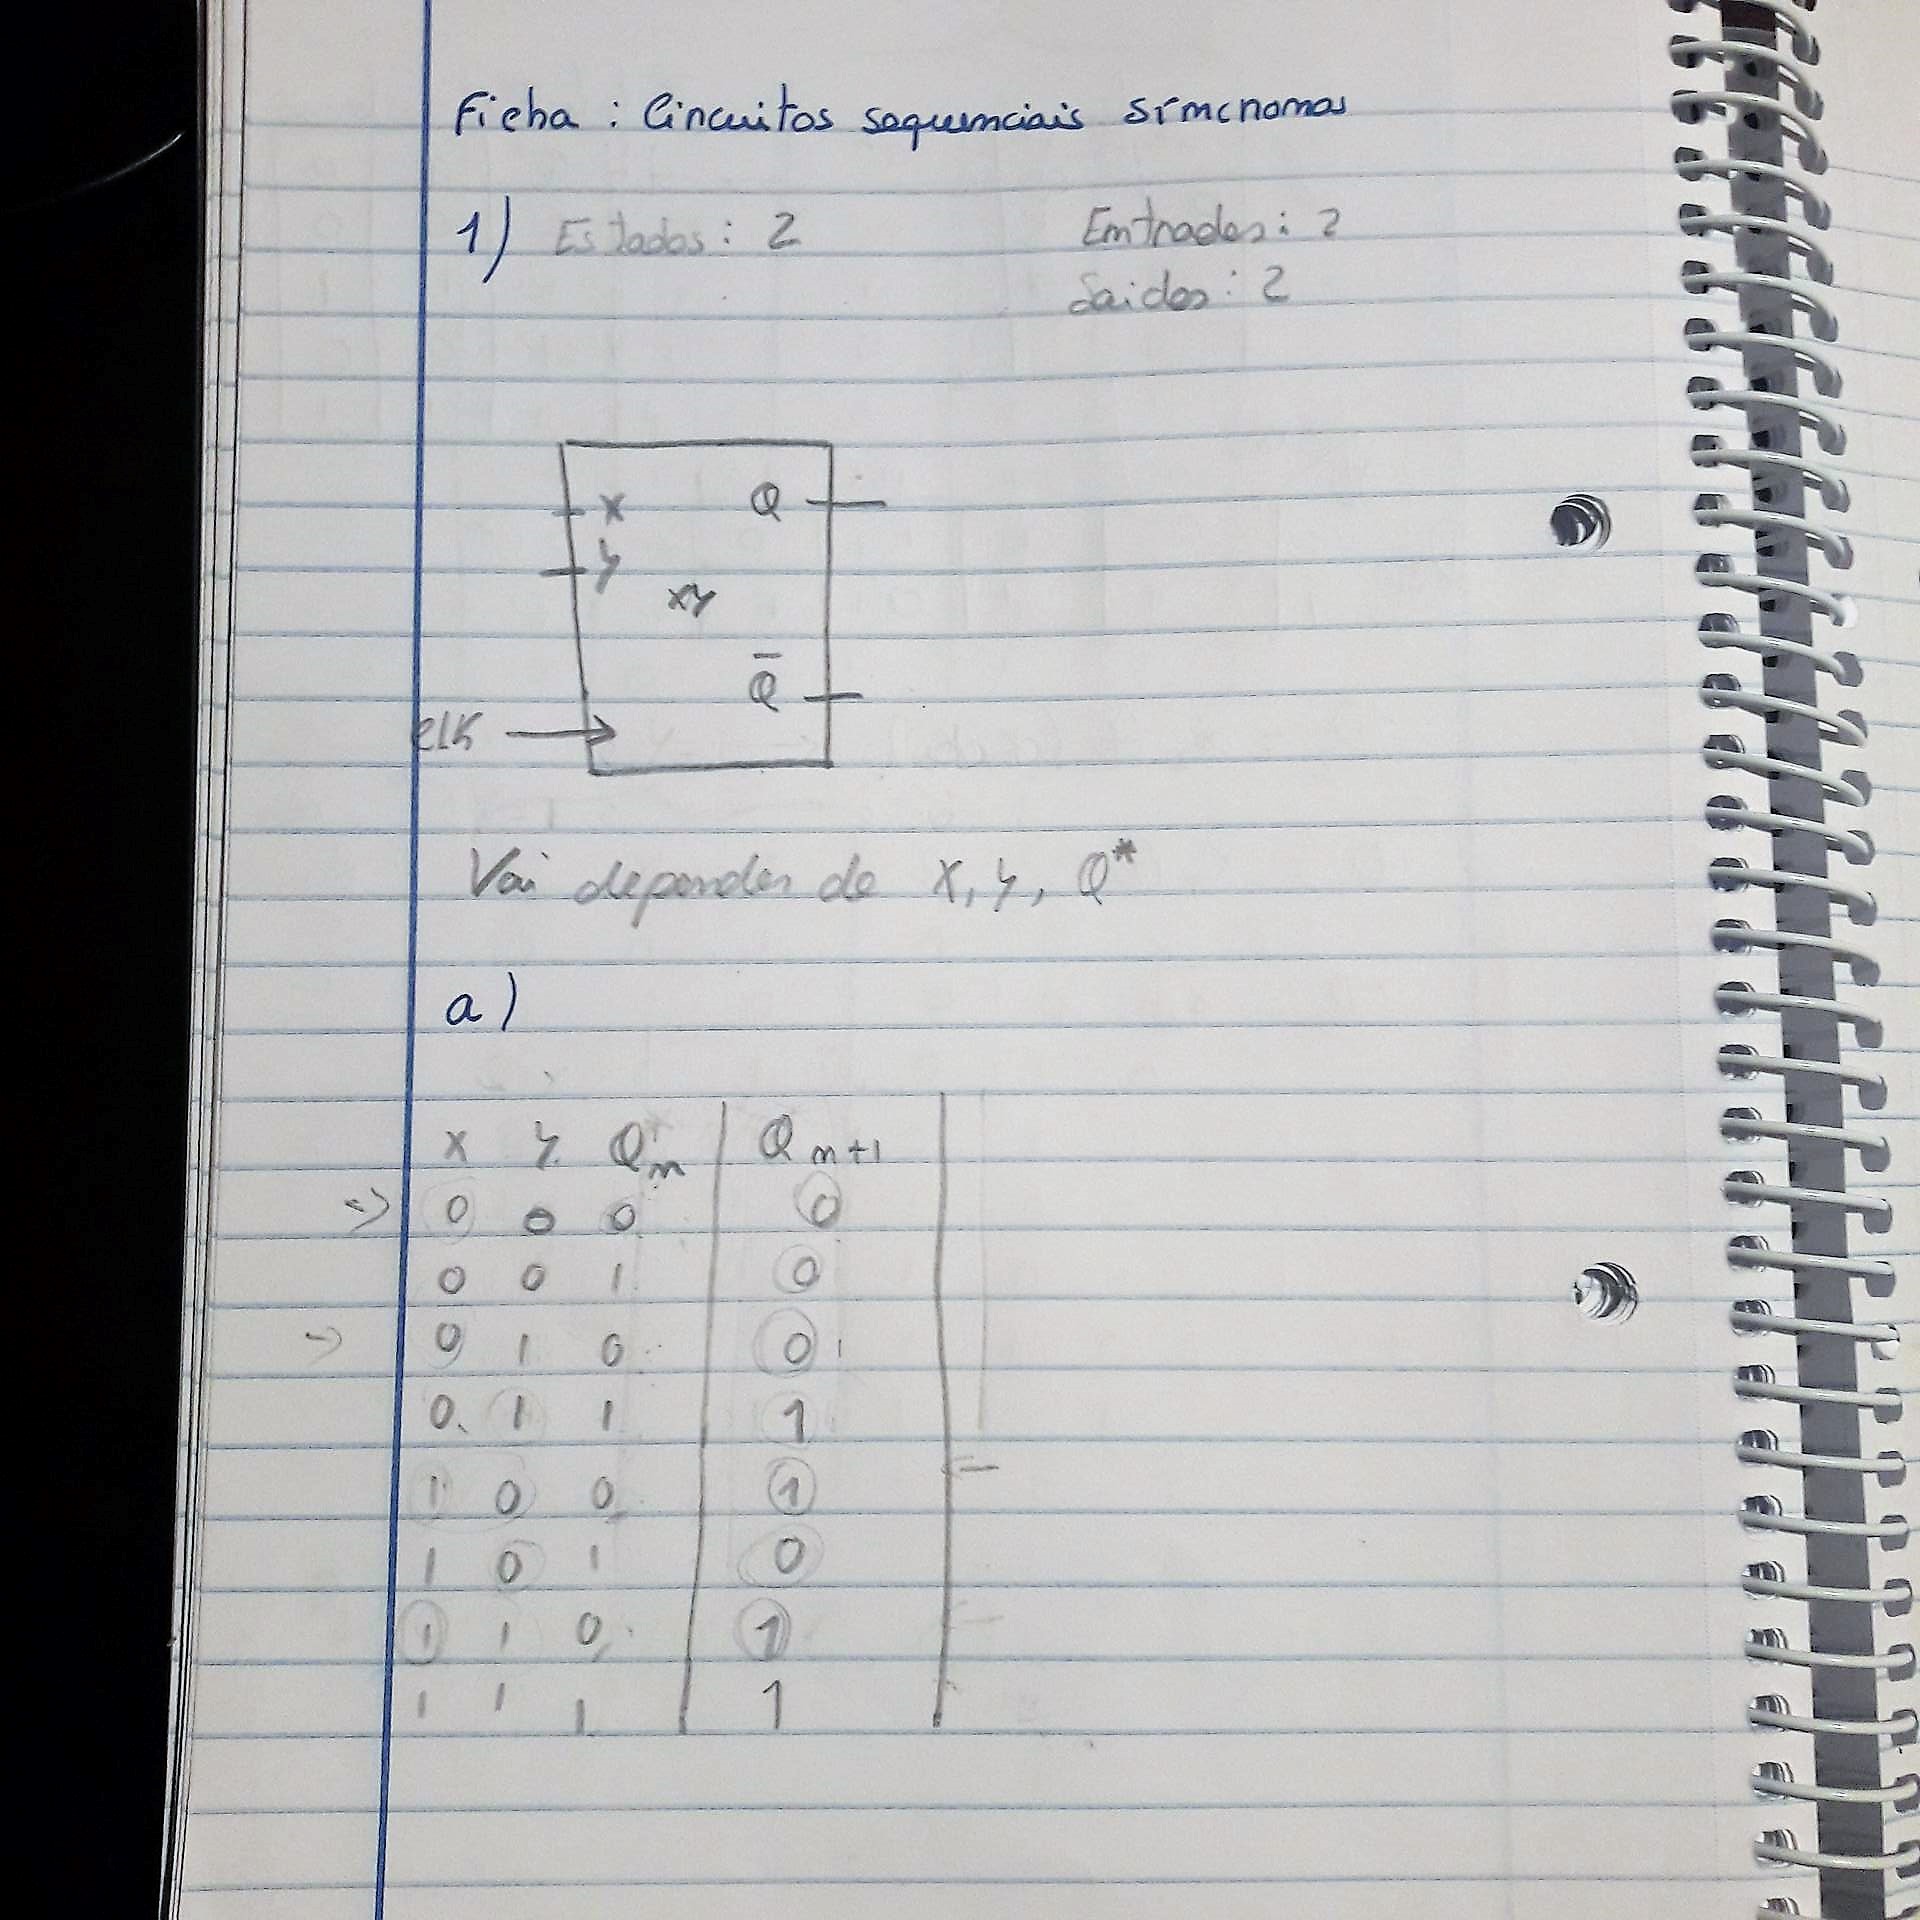 Ficha : Circuitos sequenciais símcnomos
1) Estados : 2 Entrados : 2
Saidos : 2
x Q
y
xy
Q̅
clk →
Vai depender de x, y, Q*
a)
x y Q*n Qn+1
=> 0 0 0 0
0 0 1 0
=> 0 1 0 0
0 1 1 1
1 0 0 1
1 0 1 0
1 1 0 1
1 1 1 1